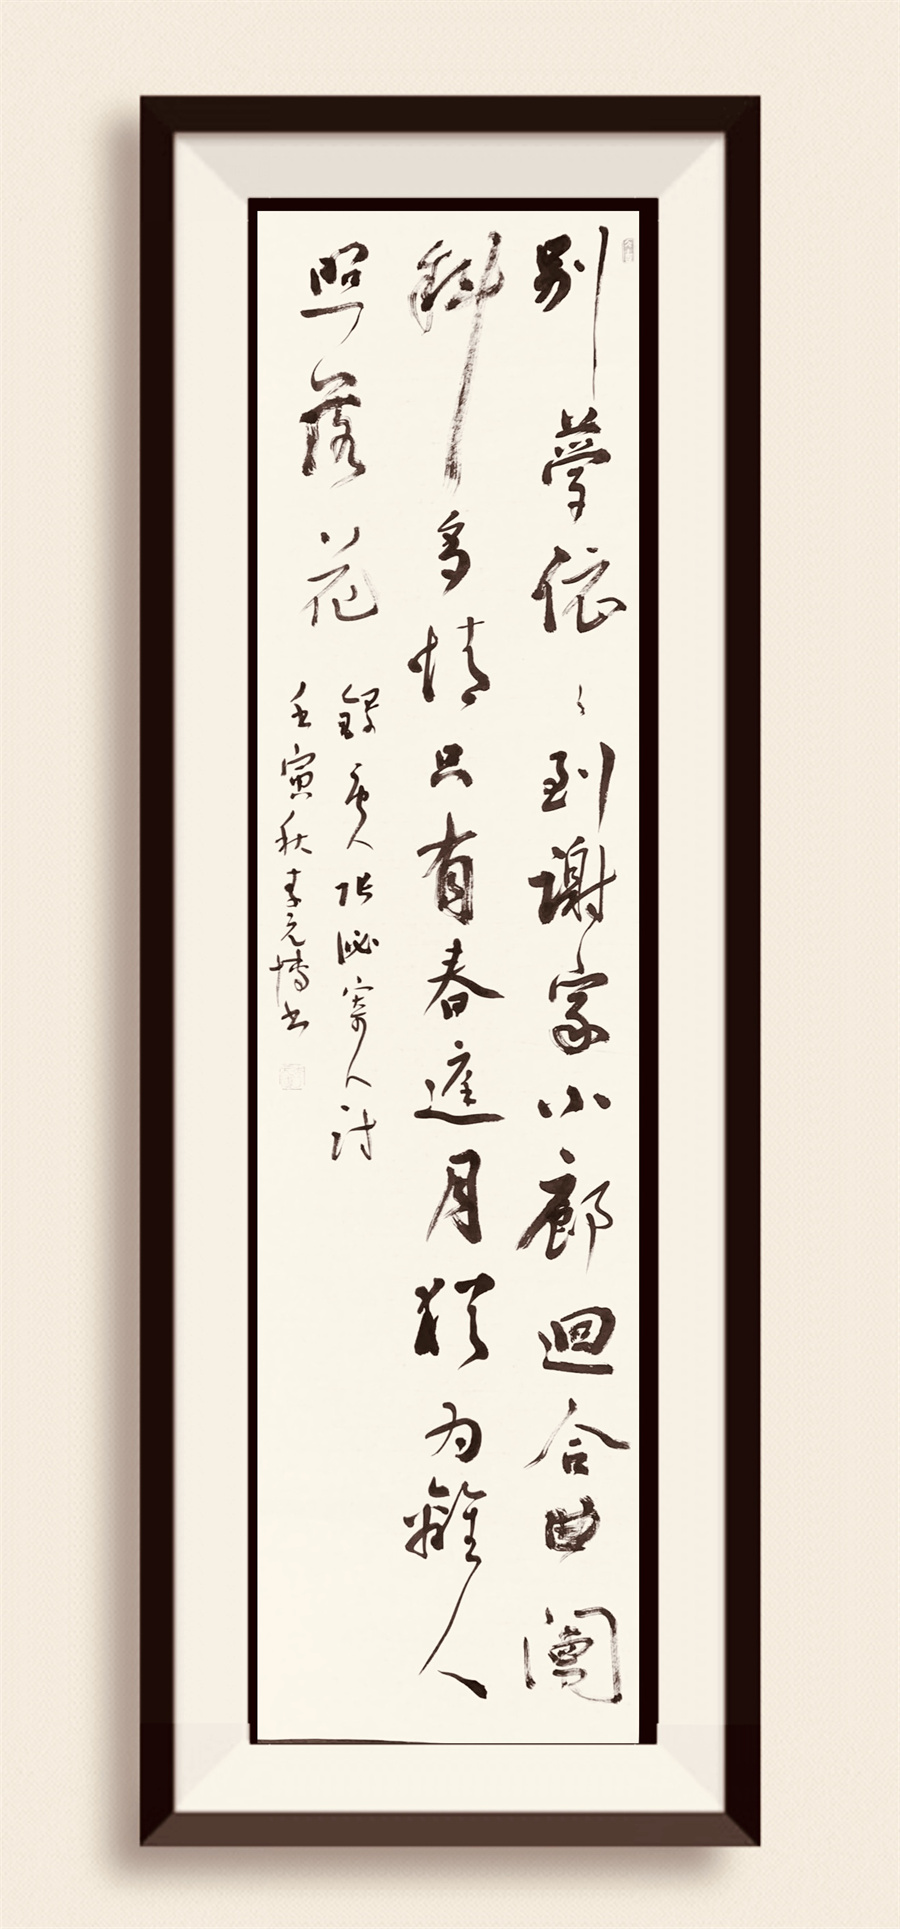 别夢依〻到謝家小廊迴合曲闌
斜多情只有春庭月猶为離人
照落花
錄唐人張泌寄人詩
壬寅秋李元博书